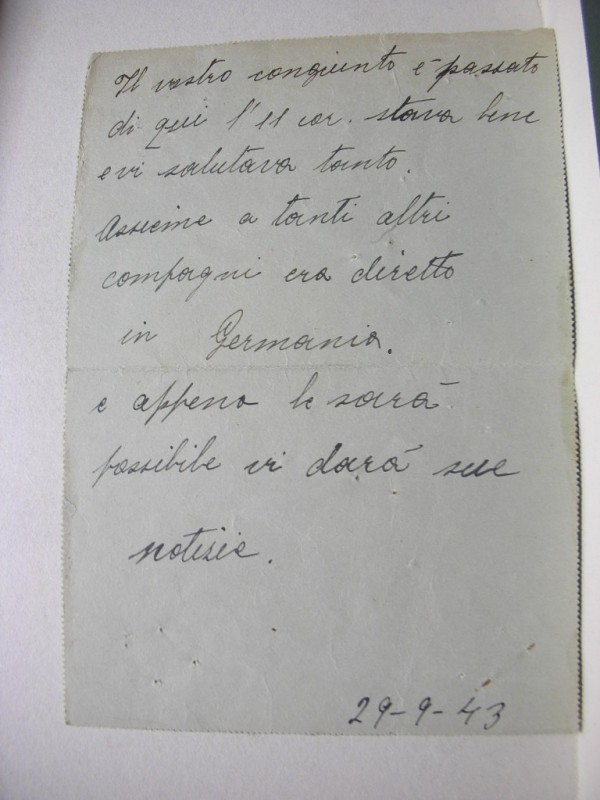 Il vostro congiunto è passato
di qui l'11 cor. stava bene
e vi salutava tanto.
Assieme a tanti altri
compagni era diretto
in Germania.
e appena le sarà
possibile vi darà sue
notizie.
29-9-43